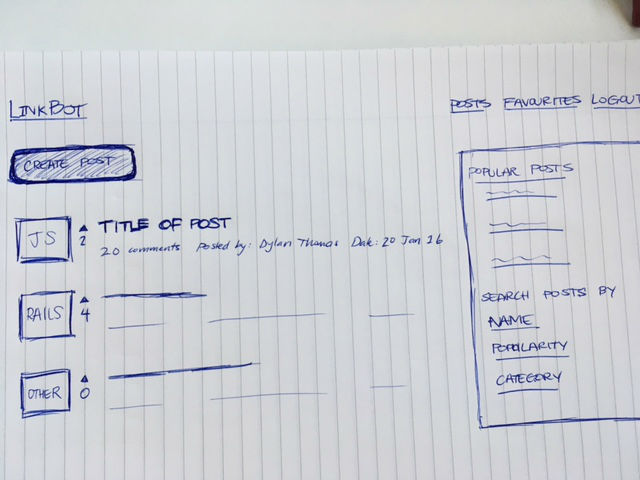 LINKBOT
POSTS FAVOURITES LOGOUT
CREATE POST
JS
▲
2
TITLE OF POST
20 comments Posted by: Dylan Thomas Date: 20 Jan 16
RAILS
▲
4
OTHER
▲
0
POPULAR POSTS
SEARCH POSTS BY
NAME
POPULARITY
CATEGORY